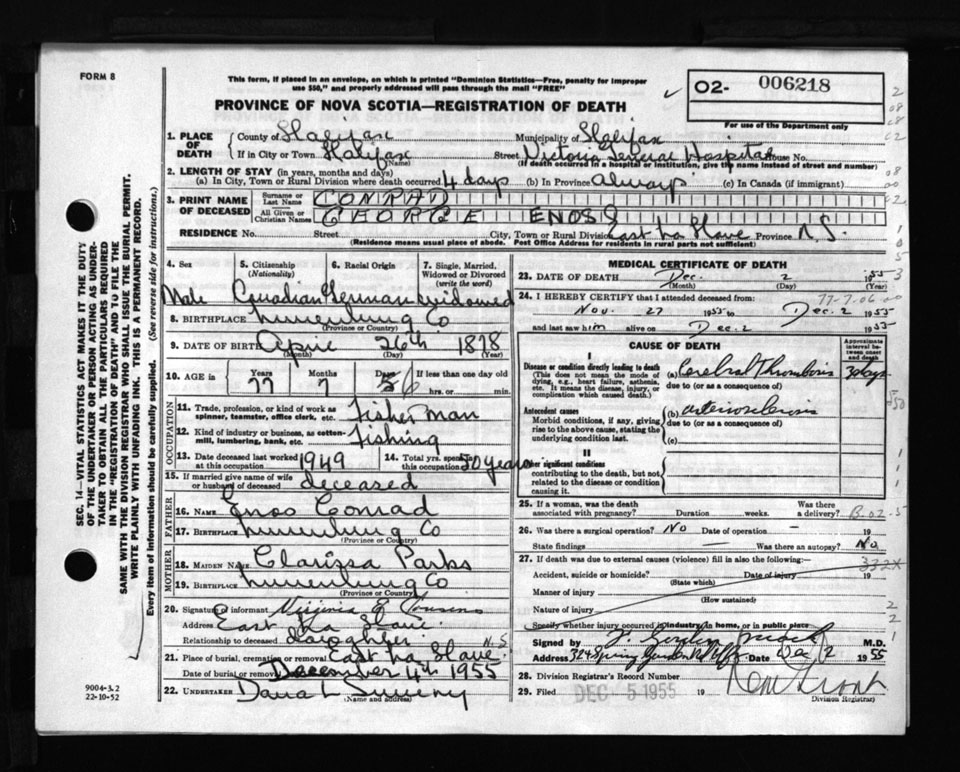 FORM 8
This form, if placed in an envelope, on which is printed "Dominion Statistics—Free, penalty for improper
use $50," and properly addressed will pass through the mail "FREE"
PROVINCE OF NOVA SCOTIA—REGISTRATION OF DEATH
O2- 006218
For use of the Department only
1. PLACE OF DEATH
County of Halifax Municipality of Halifax
If in City or Town Halifax (Name) Street Victoria General Hospital House No.
(If death occurred in a hospital or institution, give the name instead of street and number)
2. LENGTH OF STAY (in years, months and days)
(a) In City, Town or Rural Division where death occurred 4 days (b) In Province always (c) In Canada (if immigrant)
3. PRINT NAME OF DECEASED
Surname or Last Name CONRAD
All Given or Christian Names GEORGE ENOS
RESIDENCE No. Street City, Town or Rural Division East La Have Province N.S.
(Residence means usual place of abode. Post Office Address for residents in rural parts not sufficient)
4. Sex 5. Citizenship (Nationality) 6. Racial Origin 7. Single, Married, Widowed or Divorced (write the word)
Male Canadian German widowed
8. BIRTHPLACE Lunenburg Co
(Province or Country)
9. DATE OF BIRTH April 26th 1878
(Month) (Day) (Year)
10. AGE in Years Months Days If less than one day old
77 7 6 hrs. or min.
OCCUPATION
11. Trade, profession, or kind of work as spinner, teamster, office clerk, etc. fisherman
12. Kind of industry or business, as cotton-mill, lumbering, bank, etc. fishing
13. Date deceased last worked at this occupation 1949 14. Total yrs. spent in this occupation 50 years
15. If married give name of wife or husband of deceased deceased
FATHER
16. NAME Enos Conrad
17. BIRTHPLACE Lunenburg Co
(Province or Country)
MOTHER
18. MAIDEN NAME Clarissa Parks
19. BIRTHPLACE Lunenburg Co
(Province or Country)
20. Signature of informant Virginia E
Address East La Have
Relationship to deceased daughter N.S
21. Place of burial, cremation or removal East La Have
Date of burial or removal December 4th 1955
22. UNDERTAKER Dana L Sweeny
(Name and address)
MEDICAL CERTIFICATE OF DEATH
23. DATE OF DEATH Dec. 2 1955
(Month) (Day) (Year)
24. I HEREBY CERTIFY that I attended deceased from: 77-7.06
Nov. 27 1955 to Dec. 2 1955
and last saw him alive on Dec. 2 1955
CAUSE OF DEATH
Approximate interval between onset and death
I
Disease or condition directly leading to death
(This does not mean the mode of dying, e.g., heart failure, asthenia, etc. It means the disease, injury, or complication which caused death.)
(a) Cerebral Thrombosis 3 days
due to (or as a consequence of)
Antecedent causes
Morbid conditions, if any, giving rise to the above cause, stating the underlying condition last.
(b) arteriosclerosis
due to (or as a consequence of)
(c)
II
Other significant conditions
contributing to the death, but not related to the disease or condition causing it.
25. If a woman, was the death associated with pregnancy? Duration weeks. Was there a delivery?
26. Was there a surgical operation? No Date of operation – 19
State findings Was there an autopsy? No
27. If death was due to external causes (violence) fill in also the following:— 332X
Accident, suicide or homicide? Date of injury 19
(State which)
Manner of injury
(How sustained)
Nature of injury
Specify whether injury occurred in industry, in home, or in public place
Signed by M.D.
Address 324 Spring Garden Rd Date 2 1955
28. Division Registrar's Record Number
29. Filed DEC 5 1955 19
Division Registrar
SEC. 14—VITAL STATISTICS ACT MAKES IT THE DUTY
OF THE UNDERTAKER OR PERSON ACTING AS UNDER-
TAKER TO OBTAIN ALL THE PARTICULARS REQUIRED
IN THE "REGISTRATION OF DEATH" AND TO FILE THE
SAME WITH THE DIVISION REGISTRAR WHO SHALL ISSUE THE BURIAL PERMIT.
WRITE PLAINLY WITH UNFADING INK. THIS IS A PERMANENT RECORD.
Every item of information should be carefully supplied. (See reverse side for instructions.)
9004-3.2
22-10-52